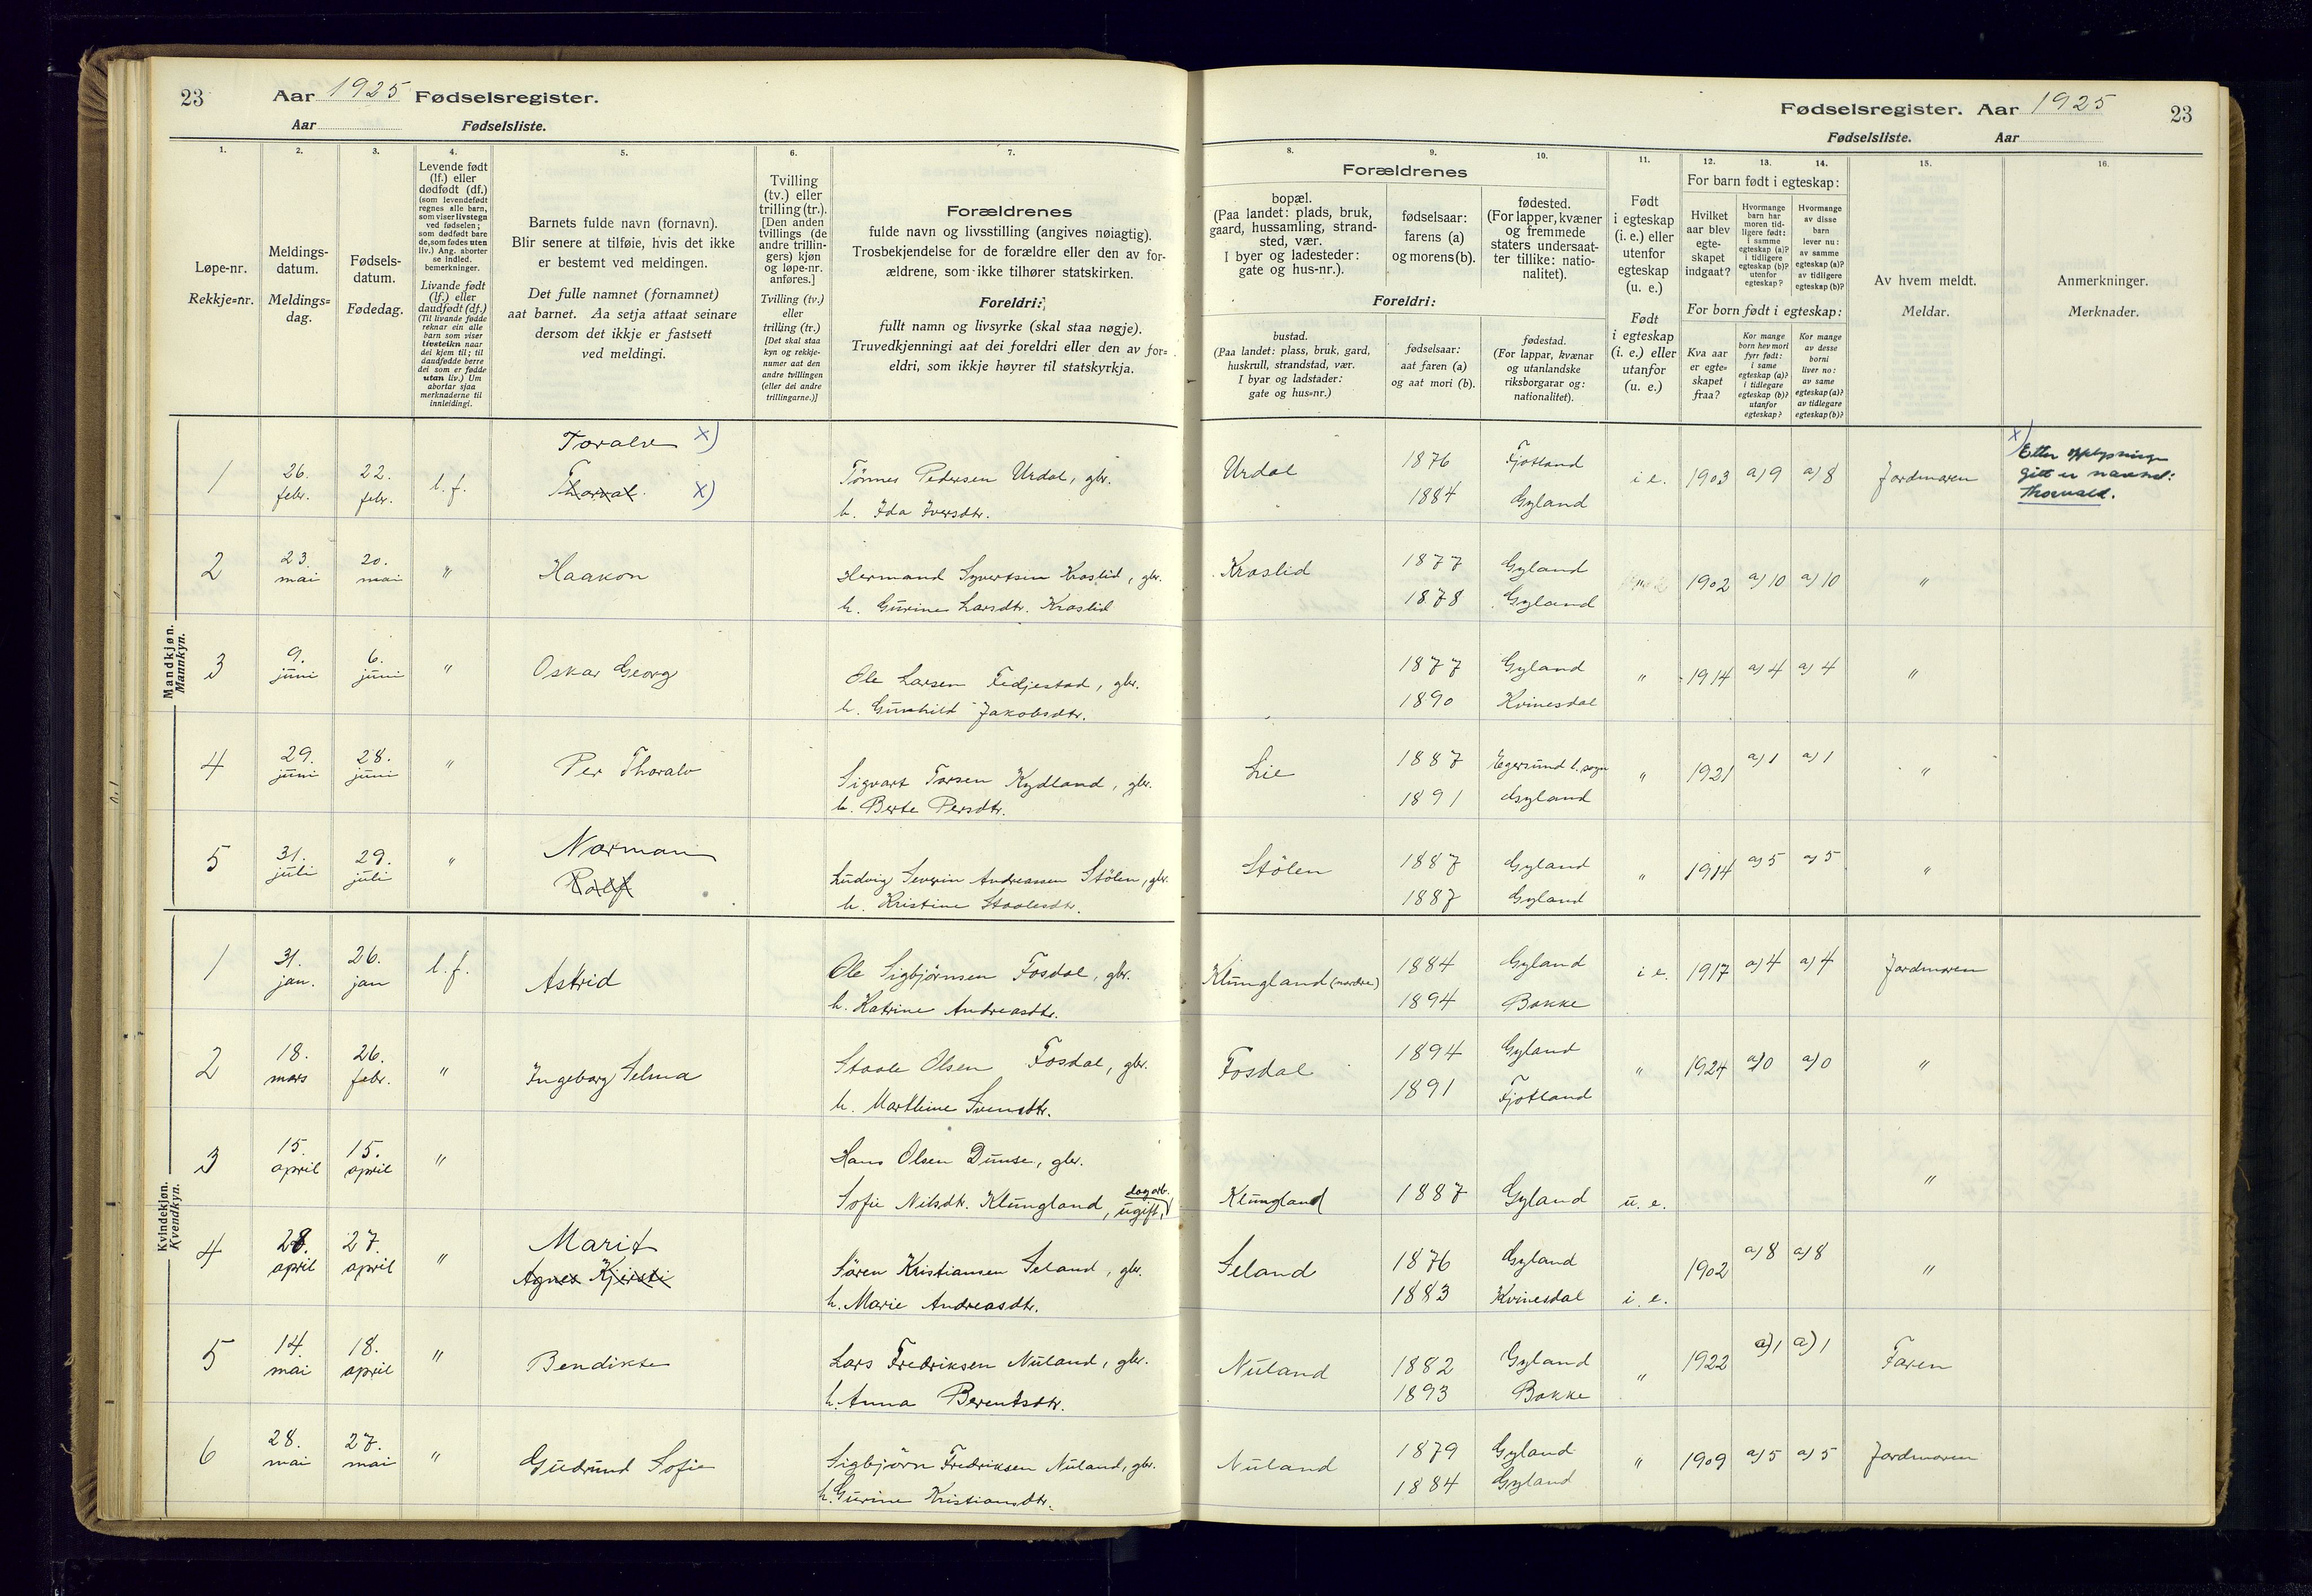 23 Aar 1925 Fødselsregister.
Aar Fødselsliste.
1.
Løpe-nr.
Rekkje=nr.
2.
Meldings-
datum.
Meldings=
dag.
3.
Fødsels-
datum.
Fødedag.
4.
Levende født
(lf.) eller
dødfødt (df.)
(som levendefødt
regnes alle barn,
som viser livstegn
ved fødselen;
som dødfødt bare
de, som fødes uten
liv.) Ang. aborter
se indled.
bemerkninger.
Livande født
(lf.) eller
daudfødt (df.)
(Til livande fødde
reknar ein alle
barn som viser
livsteikn naar
dei kjem til; til
daudfødde berre
dei som er fødde
utan liv.) Um
abortar sjaa
merknaderne til
innleidingi.
5.
Barnets fulde navn (fornavn).
Blir senere at tilføie, hvis det ikke
er bestemt ved meldingen.
Det fulle namnet (fornamnet)
aat barnet. Aa setja attaat seinare
dersom det ikkje er fastsett
ved meldingi.
6.
Tvilling
(tv.) eller
trilling (tr.).
[Den anden
tvillings (de
andre trillin-
gers) kjøn
og løpe-nr.
anføres.]
Tvilling (tv.)
eller
trilling (tr.)
[Det skal staa
kyn og rekkje-
numer aat den
andre tvillingen
(eller dei andre
trillingarne.)]
7.
Forældrenes
fulde navn og livsstilling (angives nøiagtig).
Trosbekjendelse for de forældre eller den av for-
ældrene, som ikke tilhører statskirken.
Foreldri:
fullt namn og livsyrke (skal staa nøgje).
Truvedkjenningi aat dei foreldri eller den av for=
eldri, som ikkje høyrer til statskyrkja.
Mandkjøn.
Mannkyn.
1 26. febr. 22. febr. l.f. Toralv x)
Thorval. x)
Tønnes Pedersen Urdal, gbr.
h. Ida Iversdtr.
2 23. mai 20. mai " Haakon
Hermand Syvertsen Kroslid, gbr.
h. Gurine Larsdtr. Kroslid
3 9. juni 6. juni " Oskar Georg
Ole Larsen Fedjestad, gbr.
h. Gunhild Jakobsdtr.
4 29. juni 28. juni " Per Thoralv
Sigvart Torsen Kydland, gbr.
h. Berte Persdtr.
5 31. juli 29. juli " Norman
Rolf
Ludvig Severin Andreassen Stölen, gbr.
h. Kristine Staalesdtr.
Kvindekjøn.
Kvendkyn.
1 31. jan. 26. jan l.f. Astrid
Ole Sigbjörnsen Fosdal, gbr.
h. Katrine Andreasdtr.
2 18. mars 26. febr. " Ingeborg Selma
Staale Olsen Fosdal, gbr.
h. Marthine Svensdtr.
3 15. april 15. april "
Hans Olsen Dunse, gbr.
Sofie Nilsdtr. Klungland, ugift, dagarb.
4 28. april 27. april " Marit
Agnes Kjirsti
Sören Kristiansen Seland, gbr.
h. Marie Andreasdtr.
5 14. mai 18. april " Bendikte
Lars Fredriksen Nuland, gbr.
h. Anna Berentsdtr.
6 28. mai 27. mai " Gudrund Sofie
Sigbjörn Fredriksen Nuland, gbr.
h. Gurine Kristiansdtr.
Fødselsregister. Aar 1925 23
Fødselsliste. Aar
8.
Forældrenes
bopæl.
(Paa landet: plads, bruk,
gaard, hussamling, strand-
sted, vær.
I byer og ladesteder:
gate og hus-nr.).
Foreldri:
bustad.
(Paa landet: plass, bruk, gard,
huskrull, strandstad, vær.
I byar og ladstader:
gate og hus=nr.)
9.
fødselsaar:
farens (a)
og morens (b).
fødselsaar:
aat faren (a)
og aat mori (b).
10.
fødested.
(For lapper, kvæner
og fremmede
staters undersaat-
ter tillike: natio-
nalitet).
fødestad.
(For lappar, kvænar
og utanlandske
riksborgarar og:
nationalitet).
11.
Født
i egteskap
(i. e.) eller
utenfor
egteskap
(u. e.)
Født
i egteskap
(i. e.) eller
utanfor
(u. e.)
For barn født i egteskap:
12.
Hvilket
aar blev
egte-
skapet
indgaat?
13.
Hvormange
barn har
moren tid-
ligere født:
i samme
egteskap (a)?
i tidligere
egteskap (b)?
utenfor
egteskap?
14.
Hvormange
av disse
barn
lever nu:
av samme
egteskap (a)?
av tidligere
egteskap (b)?
For born født i egteskap:
Kva aar
er egte=
skapet
fraa?
Kor mange
born hev mori
fyrr født:
i same
egteskap (a)?
i tidlegare
egteskap (b)?
utanfor
egteskap?
Kor mange
av desse
borni
liver no:
av same
egteskap (a)?
av tidlegare
egteskap (b)?
15.
Av hvem meldt.
Meldar.
16.
Anmerkninger.
Merknader.
Urdal 1876 Fjotland i e. 1903 a) 9 a) 8 Jordmoren
1884 Gyland
x) Etter opplysninge
gitt er navnet:
Thorvald.
Kroslid 1877 Gyland " 1902 a) 10 a) 10 "
1878 Gyland
1877 Gyland " 1914 a) 4 a) 4 "
1890 Kvinesdal
Lie 1887 Egersund l. sogn " 1921 a) 1 a) 1 "
1891 Gyland
Stölen 1887 Gyland " 1914 a) 5 a) 5 "
1887 Gyland
Klungland (nordre) 1884 Gyland i e. 1917 a) 4 a) 4 Jordmoren
1894 Bakke
Fosdal 1894 Gyland " 1924 a) 0 a) 0 "
1891 Fjotland
Klungland 1887 Gyland u. e. "
Seland 1876 Gyland 1902 a) 8 a) 8 "
1883 Kvinesdal i. e.
Nuland 1882 Gyland " 1922 a) 1 a) 1 Faren
1893 Bakke
Nuland 1879 Gyland " 1909 a) 5 a) 5 Jordmoren
1884 Gyland